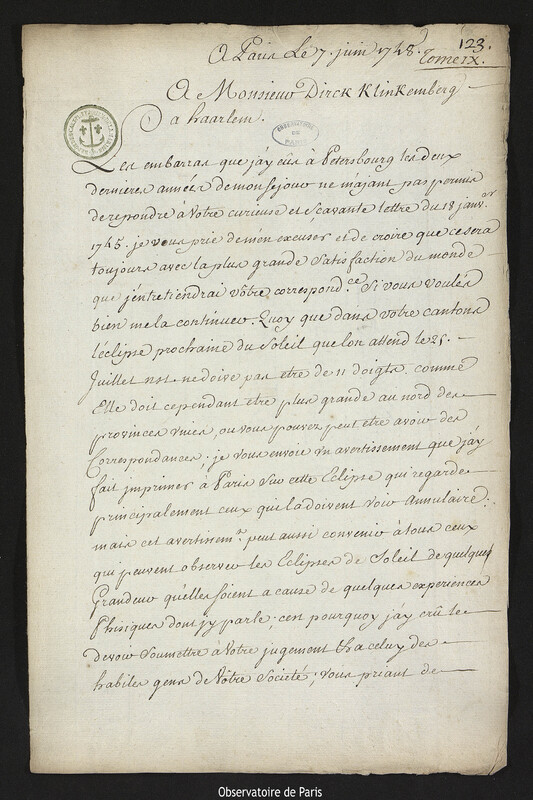 123.
A Paris Le 7. juin 1748.
Tome IX.
A Monsieur Dirck Klinkemberg
a haarlem.
OBSERVATOIRE DE PARIS
Les embarras que j'ay eûs à Petersbourg les deux
dernieres années de mon sejour ne m'ajant pas permis
de repondre à Votre curieuse et sçavante lettre du 18 janv.er
1745. je vous prie de m'en excuser et de croire que ce sera
toujours avec la plus grande Satisfaction du monde
que j'entretiendrai vôtre correspond.ce Si vous voulés
bien me la continuer. Quoy que dans votre cantons
l'éclipse prochaine du Soleil que lon attend le 25.
Juillet ne doive pas etre de 11 doigts, comme
Elle doit cependant etre plus grande au nord des
provinces unies, ou vous pouvez peut etre avoir des
Correspondances; je vous envoie un avertissement que j'ay
fait imprimer à Paris sur cette Eclipse qui regarde
principalement ceux qui la doivent voir Annulaire;
mais cet avertissem.t peut aussi convenir à tous ceux
qui peuvent observer les Eclipses de Soleil de quelques
Grandeur qu'elles soient a cause de quelques experiences
Phisiques dont j'y parle; c'est pourquoy j'ay crû le
devoir soumettre à Votre jugement & a celuy des
habiles gens de Vôtre Societé; vous priant de
Observatoire de Paris